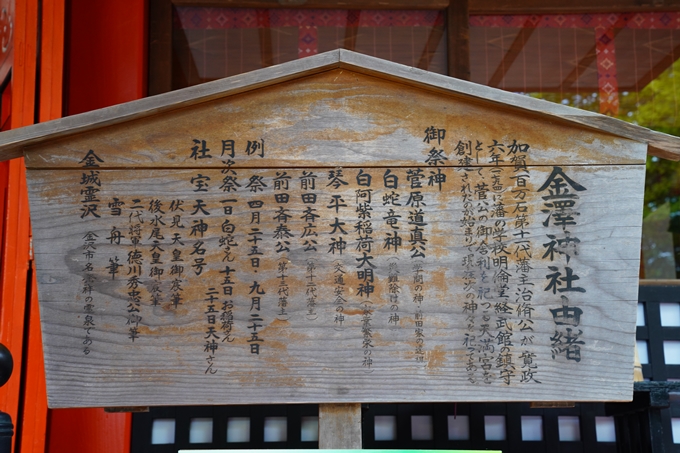 金澤神社由緒
加賀百万石第十一代藩主治脩公が寛政
六年(一七九四)に藩の学校明倫堂経武館の鎮守
として、菅公の御舎利を祀つる天満宮を
創建されたのが始まり 現在次の神々を祀てある
御祭神
菅原道真公(学問の神・前田家の先祖)
白蛇竜神
白阿紫稲荷大明神
琴平大神(交通安全の神)
前田斉広公(第十二代藩主)
前田斉泰公(第十三代藩主)
例祭 四月二十五日・九月二十五日
月次祭 一日白蛇さん 十五日お稲荷さん
二十五日天神さん
社宝 天神名号
伏見天皇御宸筆
後水尾天皇御宸筆
二代将軍徳川秀忠公御筆
雪舟筆
金城霊沢 金沢市名発祥の霊泉である